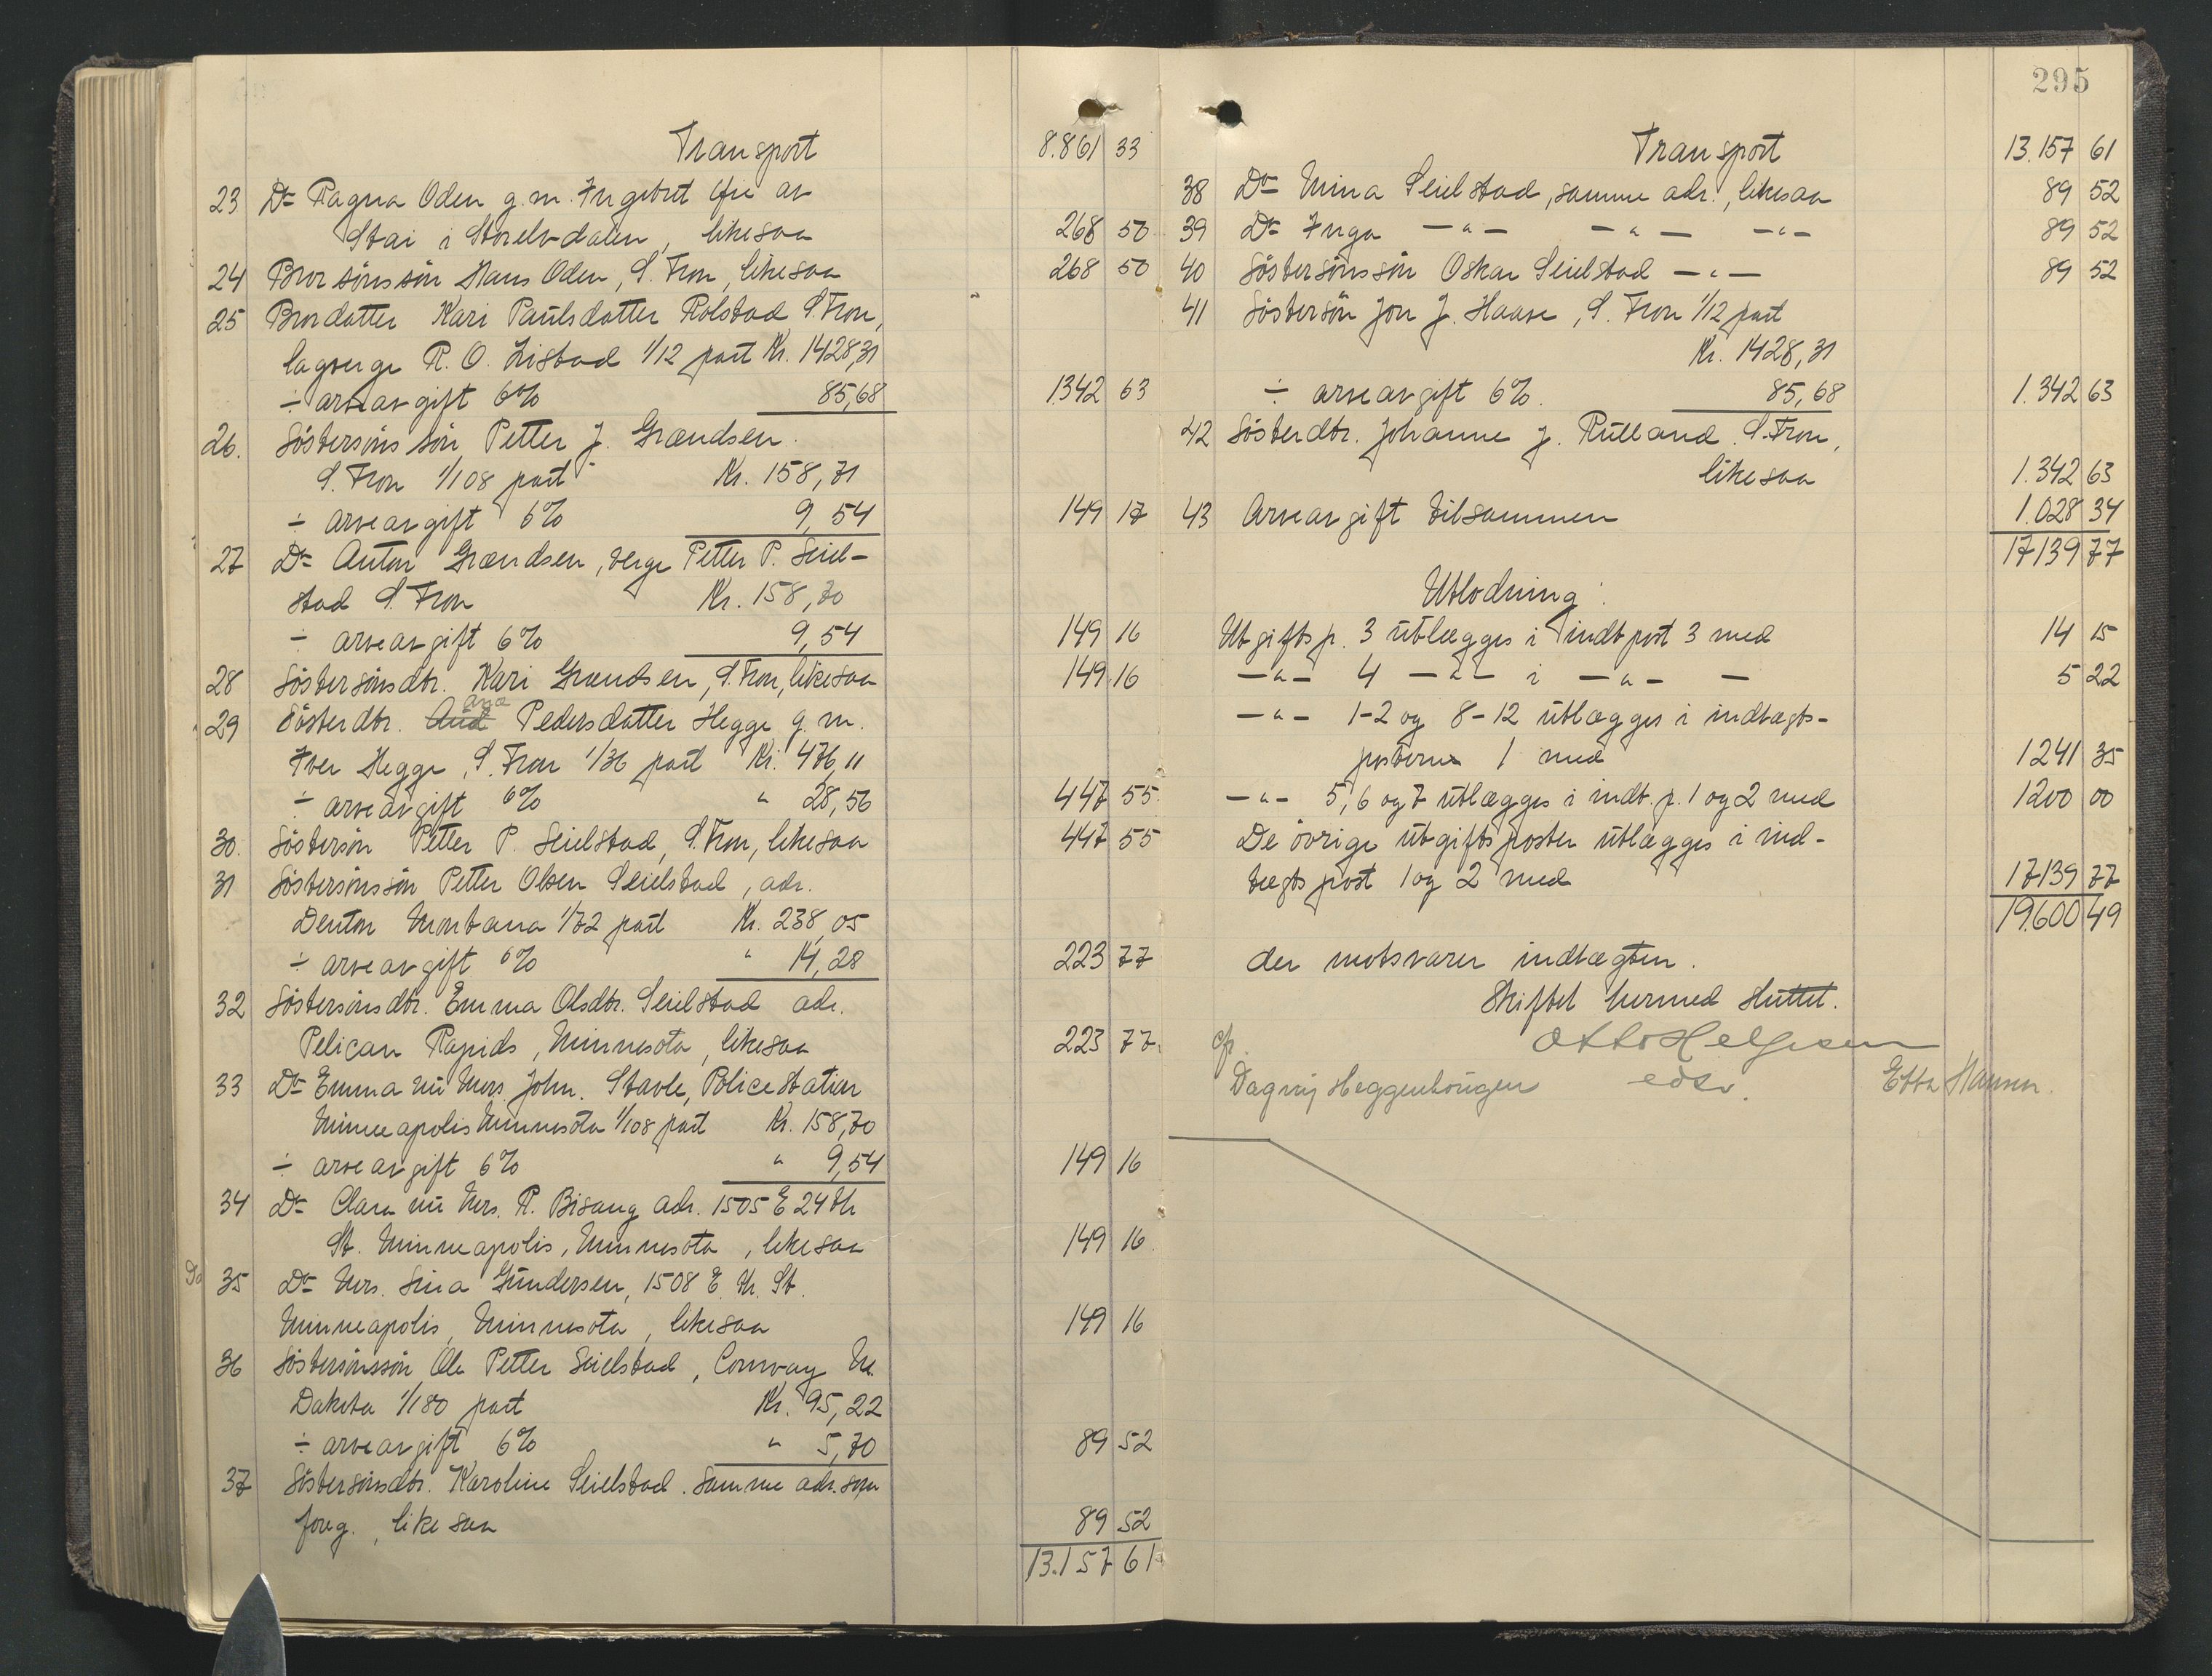 Transport 8.861 33
23 Do Ragna Oden g.m. Ingebret Øie av
Stai i Storelvdalen, likesaa 268 50
24 Brorsönssön Hans Oden, S. Fron, likesaa 268 50
25 Brordatter Kari Paulsdatter Rolstad S. Fron,
lagverge R. O. Listad 1/12 part Kr. 1428,31
÷ arveavgift 6% 85,68 1342 63
26. Söstersöns sön Petter J. Grændsen.
S. Fron 1/108 part Kr. 158,71
÷ arveavgift 6% 9,54 149 17
27 Do Anton Grændsen, verge Petter P. Seiel-
stad S. Fron Kr. 158,70
÷ arveavgift 6% 9,54 149 16
28 Söstersönsdtr. Kari Grændsen, S. Fron, likesaa 149 16
29 Sösterdtr. Aud ana Pedersdatter Hegge g. m.
Iver Hegge, S. Fron 1/36 part Kr. 476,11
÷ arveavgift 6% " 28,56 447 55
30. Söstersön Petter P. Seielstad, S. Fron, likesaa 447 55
31 Söstersönssön Petter Olsen Seielstad, adr.
Denton Montana 1/72 part Kr. 238,05
÷ arveavgift 6% " 14,28 223 77
32 Söstersönsdtr. Emma Olsdtr. Seielstad adr.
Pelican Rapids, Minnesota, likesaa 223 77
33 Do Emma nu Mrs. John. Stavle, Police Station
Minneapolis Minnesota 1/108 part Kr. 158,70
÷ arveavgift 6% " 9,54 149 16
34 Do Clara nu Mrs. R. Bisang adr. 1505 E 24th
St. Minneapolis, Minnesota, likesaa 149 16
Do 35 Do Mrs. Sina Gundersen, 1508 E. St.
Minneapolis, Minnesota, likesaa 149 16
36 Söstersönssön Ole Petter Seielstad, Conway N.
Dakota 1/180 part Kr. 95,22
÷ arveavgift 6% " 5,70 89 52
37 Söstersönsdtr. Karoline Seielstad. samme adr. som
foreg., likesaa 89 52
13.157 61
295
Transport 13.157 61
38 Do Mina Seielstad, samme adr., likesaa 89 52
39 Do Inga —"— —"— —"— 89 52
40 Söstersönssön Oskar Seielstad —"— 89 52
41 Söstersön Jon J. Haave, S. Fron 1/12 part
Kr. 1428,31
÷ arveavgift 6%. 85,68 1.342 63
42 Sösterdtr. Johanne J. Rulland S. Fron,
likesaa 1.342 63
43 Arveavgift tilsammen 1.028 34
17139 77
Utlodning:
Utgiftsp. 3 utlægges i indt post 3 med 14 15
—"— 4 —"— i —"— — 5 22
—"— 1-2 og 8-12 utlægges i indtægts-
posterne 1 med 1241 35
—"— 5, 6 og 7 utlægges i indt. p. 1 og 2 med 1200 00
De övrige utgiftsposter utlægges i ind-
tægts post 1 og 2 med 17139 77
19.600 49
der motsvarer indtægten.
Skiftet hermed sluttet.
cfr. Otto Helgesen
Dagny Heggenhougen edsv. Etta Hansen.